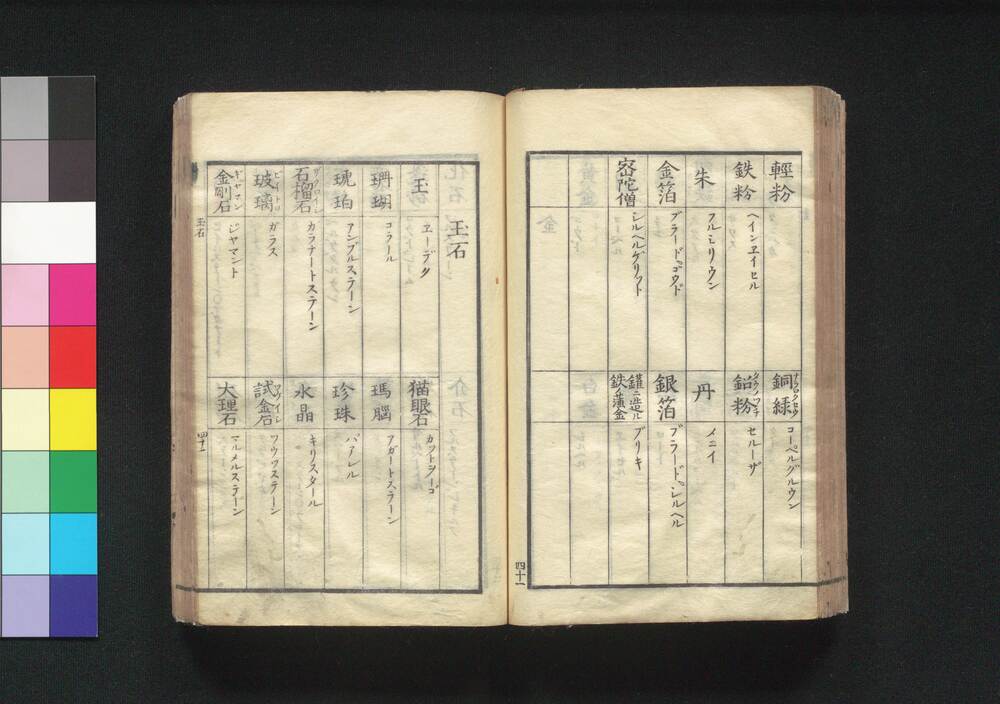 輕粉
鉄粉
ヘインヱイセル
朱
フルミリウン
金箔
ブラードゴウド
密陀僧
シルヘルゲリット
銅緑
コーペルグルウン
鉛粉
セルーザ
丹
メニイ
銀箔
ブラードシルヘル
鑵ニ造ル
鉄ノ薄金
ブリキ
四十一
玉石
玉
ヱーデタ
珊瑚
コラール
琥珀
アンブルステーン
石榴石
ガラナートステーン
玻璃
ビイドロ
ガラス
金剛石
ギヤマン
ジヤマント
猫眼石
カットヲーゴ
瑪腦
アガートステーン
珍珠
パアレル
水晶
キリスタール
試金石
ツケイシ
トウツステーン
大理石
マルメルステーン
玉石
四十二